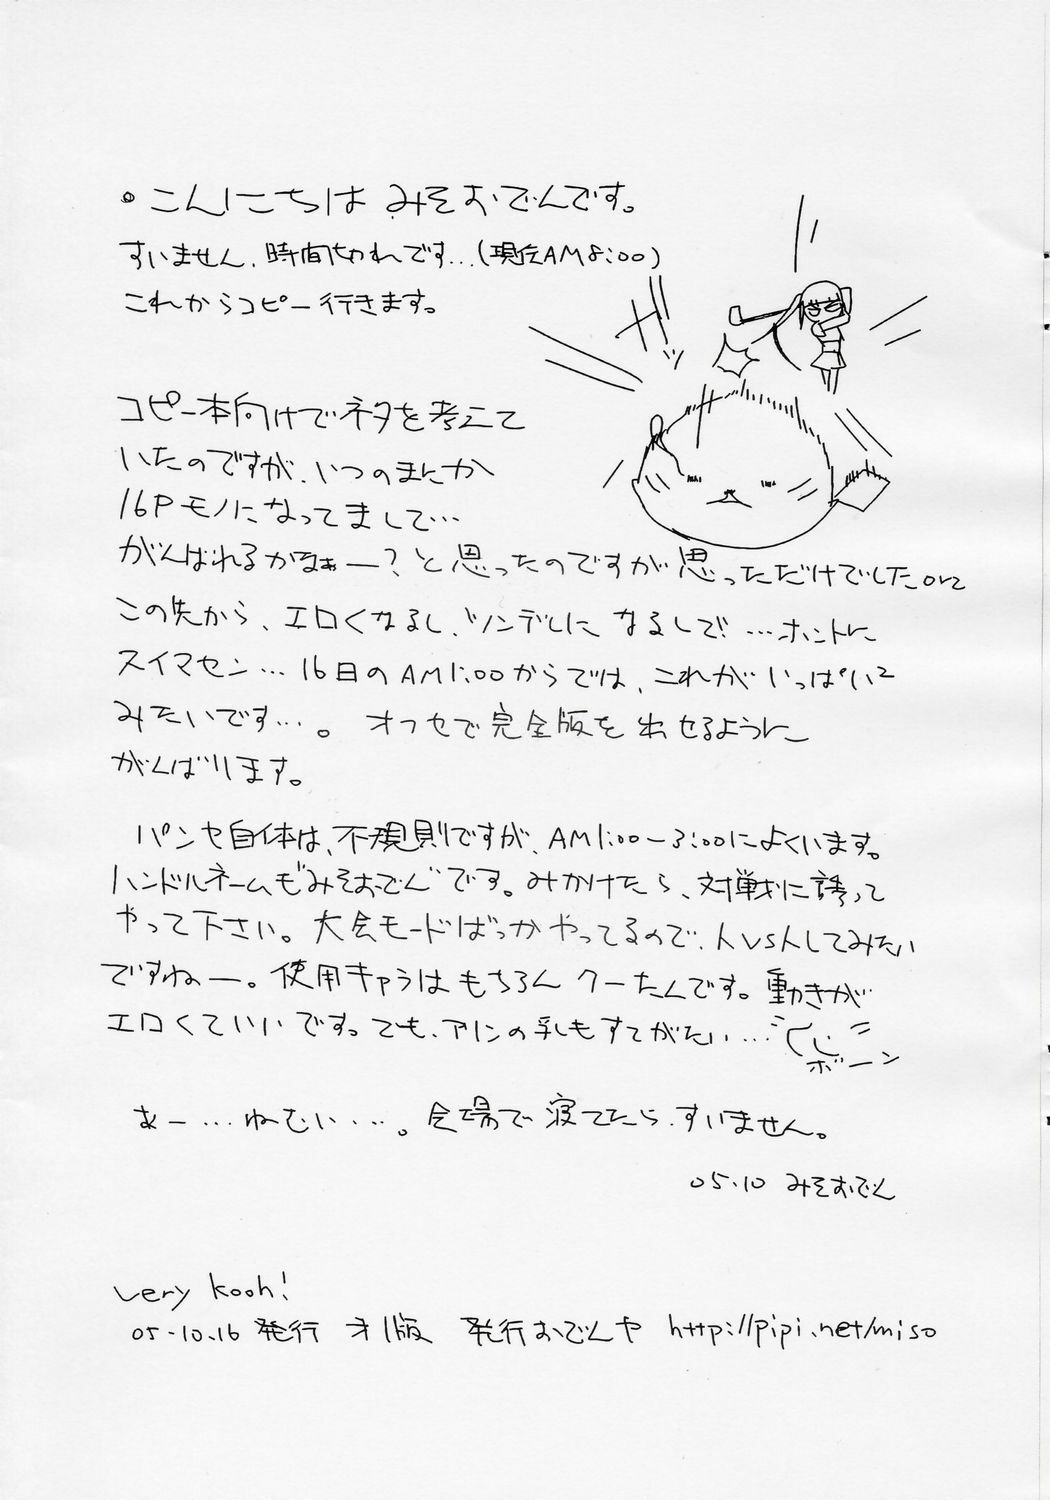 。こんにちは みそおでんです。
すいません、時間切れです…(現在AM8:00)
これからコピー行きます。
コピー本向けでネタを考えて
いたのですが、いつのまにか
16Pモノになってまして…
がんばれるかなぁー?と思ったのですが思っただけでしたorz
この先から、エロくなるし、ツンデレになるしで!…ホントに
スイマセン…16日のAM1:00からでは、これがいっぱい²
みたいです…。オフセで完全版を出せるように
がんばります。
パンヤ自体は、不規則ですが、AM1:00-3:00によくいます。
ハンドルネームも"みそおでん"です。みかけたら、対戦に誘って
やって下さい。大会モードばっかやってるので、人vs人してみたい
ですねー。使用キャラはもちろんクーたんです。動きが
エロくていいです。でも、アリンの乳もすてがたい…
ボーン
あー…ねむい…。会場で寝てたら、すいません。
05.10 みそおでん
very kooh!
05.10.16 発行 オ1版 発行おでんヤ http://pipi.net/miso